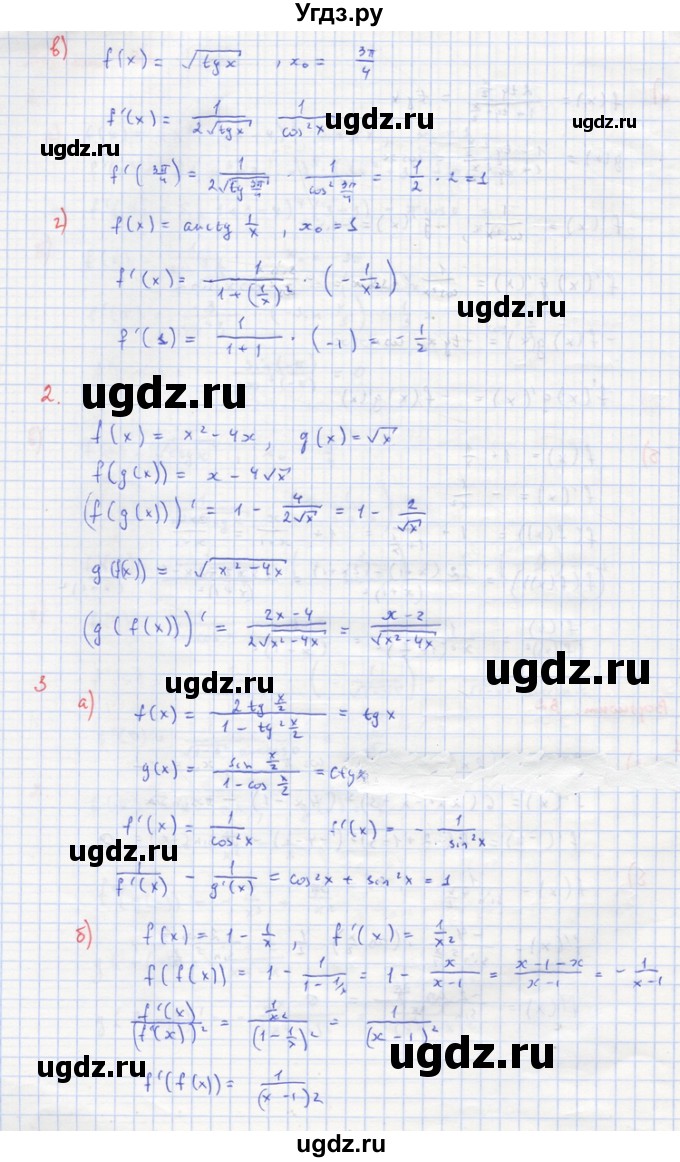 Угдз.ру
в) f(x) = √(tg x) , x₀ = 3π/4
f'(x) = 1/(2√(tg x)) 1/(cos²x)
ugdz.ru
ugdz.ru
f'(3π/4) = 1/(2√(tg 3π/4)) · 1/(cos² 3π/4) = 1/2 · 2 = 1
г) f(x) = arctg 1/x , x₀ = 1
f'(x) = 1/(1+(1/x)²) · (-1/x²)
ugdz.ru
f'(1) = 1/(1+1) · (-1) = -1/2
ugdz.ru
2.
f(x) = x² - 4x, g(x) = √x
f(g(x)) = x - 4√x
(f(g(x)))' = 1 - 4/(2√x) = 1 - 2/√x
ugdz.ru
g(f(x)) = √(x² - 4x)
(g(f(x)))' = (2x - 4)/(2√(x² - 4x)) = (x - 2)/√(x² - 4x)
ugdz.ru
ugdz.ru
3 а) f(x) = (2 tg x/2)/(1 - tg² x/2) = tg x
g(x) = (sin x/2)/(1 - cos x/2) = ctg x
f'(x) = 1/(cos²x) f'(x) = - 1/(sin²x)
ugdz.ru
1/(f'(x)) - 1/(g'(x)) = cos²x + sin²x = 1
б) f(x) = 1 - 1/x , f'(x) = 1/x²
f(f(x)) = 1 - 1/(1 - 1/x) = 1 - x/(x-1) = (x-1-x)/(x-1) = - 1/(x-1)
f'(x)/(f(x))² = (1/x²)/(1 - 1/x)² = 1/(x-1)²
ugdz.ru
ugdz.ru
f'(f(x)) = 1/(x-1)2
ugdz.ru